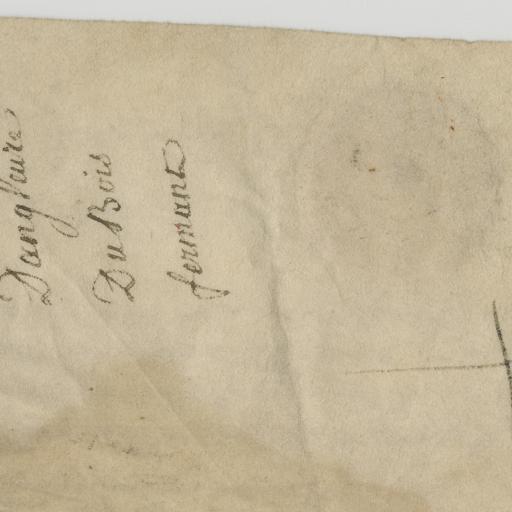 Dangleure
DuBois
fermant